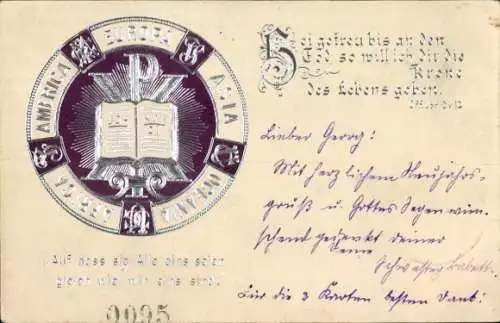 EUROPA
ASIA
AMERIKA
Sei getreu bis an den
Tod, so will ich dir die
Krone
des Lebens geben.
Auf dass sie Alle eins seien
gleich wie wir eins sind.
0095
Lieber Georg:
Mit herzlichem Neujahrs-
gruß u. Gottes Segen wün-
schend gedenkt deiner
Deine
Schwester Babett.
Für die 3 Karten besten Dank!